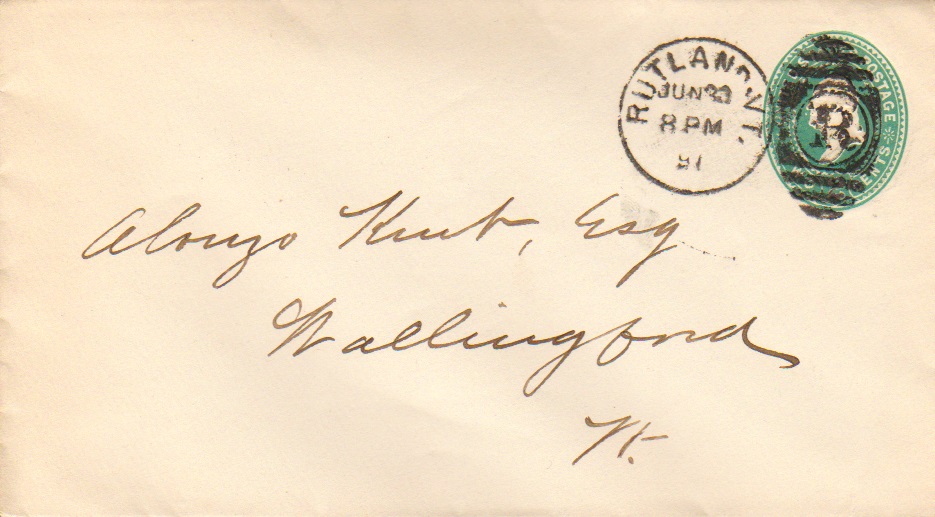 RUTLAND, VT.
JUN 23
8 PM
91
POSTAGE
CENTS
R
Alonzo Kent, Esq
Wallingford
Vt.